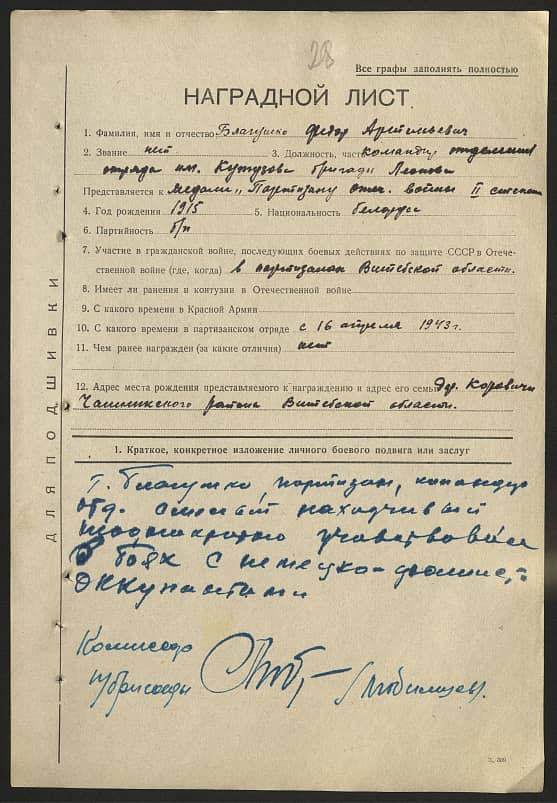 28
Все графы заполнять полностью
НАГРАДНОЙ ЛИСТ
1. Фамилия, имя и отчество Благушко Федор Артемьевич
2. Звание нет 3. Должность, часть командир отделения
отряда им. Кутузова бригады Леонова
Представляется к медали „Партизану отеч. войны II степени
4. Год рождения 1915 5. Национальность белорус
6. Партийность б/п
7. Участие в гражданской войне, последующих боевых действиях по защите СССР в Отече-
ственной войне (где, когда) в партизанах Витебской области.
8. Имеет ли ранения и контузии в Отечественной войне
9. С какого времени в Красной Армии
10. С какого времени в партизанском отряде с 16 апреля 1943 г.
11. Чем ранее награжден (за какие отличия) нет
12. Адрес места рождения представляемого к награждению и адрес его семьи дер. Коровичи
Чашникского района Витебской области.
1. Краткое, конкретное изложение личного боевого подвига или заслуг
Т. Благушко, партизан, командир
отд. смелый находчивый
неоднократно участвовал
в боях с немецко-фашист.
оккупантами
Комиссар
п/бригады
ДЛЯ ПОДШИВКИ